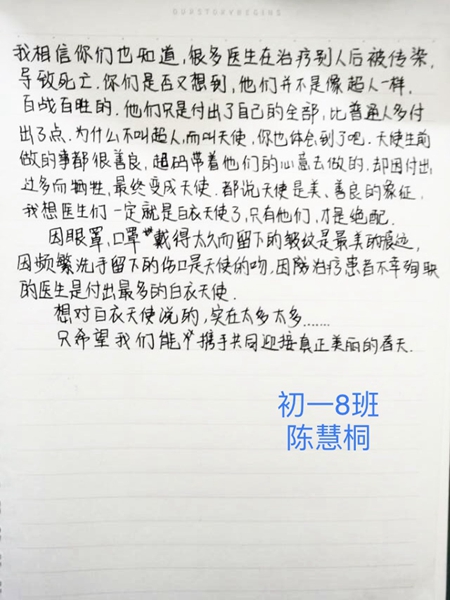 OURSTORYBEGINS
我相信你们也知道,很多医生在治疗别人后被传染,
导致死亡.你们是否又想到,他们并不是像超人一样,
百战百胜的.他们只是付出了自己的全部,比普通人多付
出了点.为什么不叫超人,而叫天使,你也体会到了吧.天使生前
做的事都很善良,超码带着他们的心意去做的.却因付出
过多而牺牲,最终变成天使.都说天使是美、善良的象征,
我想医生们一定就是白衣天使了,只有他们,才是绝配.
因眼罩,口罩戴得太久而留下的皱纹是最美的痕迹,
因频繁洗手留下的伤口是天使的吻,因防治疗患者不幸殉职
的医生是付出最多的白衣天使.
想对白衣天使说的,实在太多太多……
只希望我们能携手共同迎接真正美丽的春天.
初一8班
陈慧桐